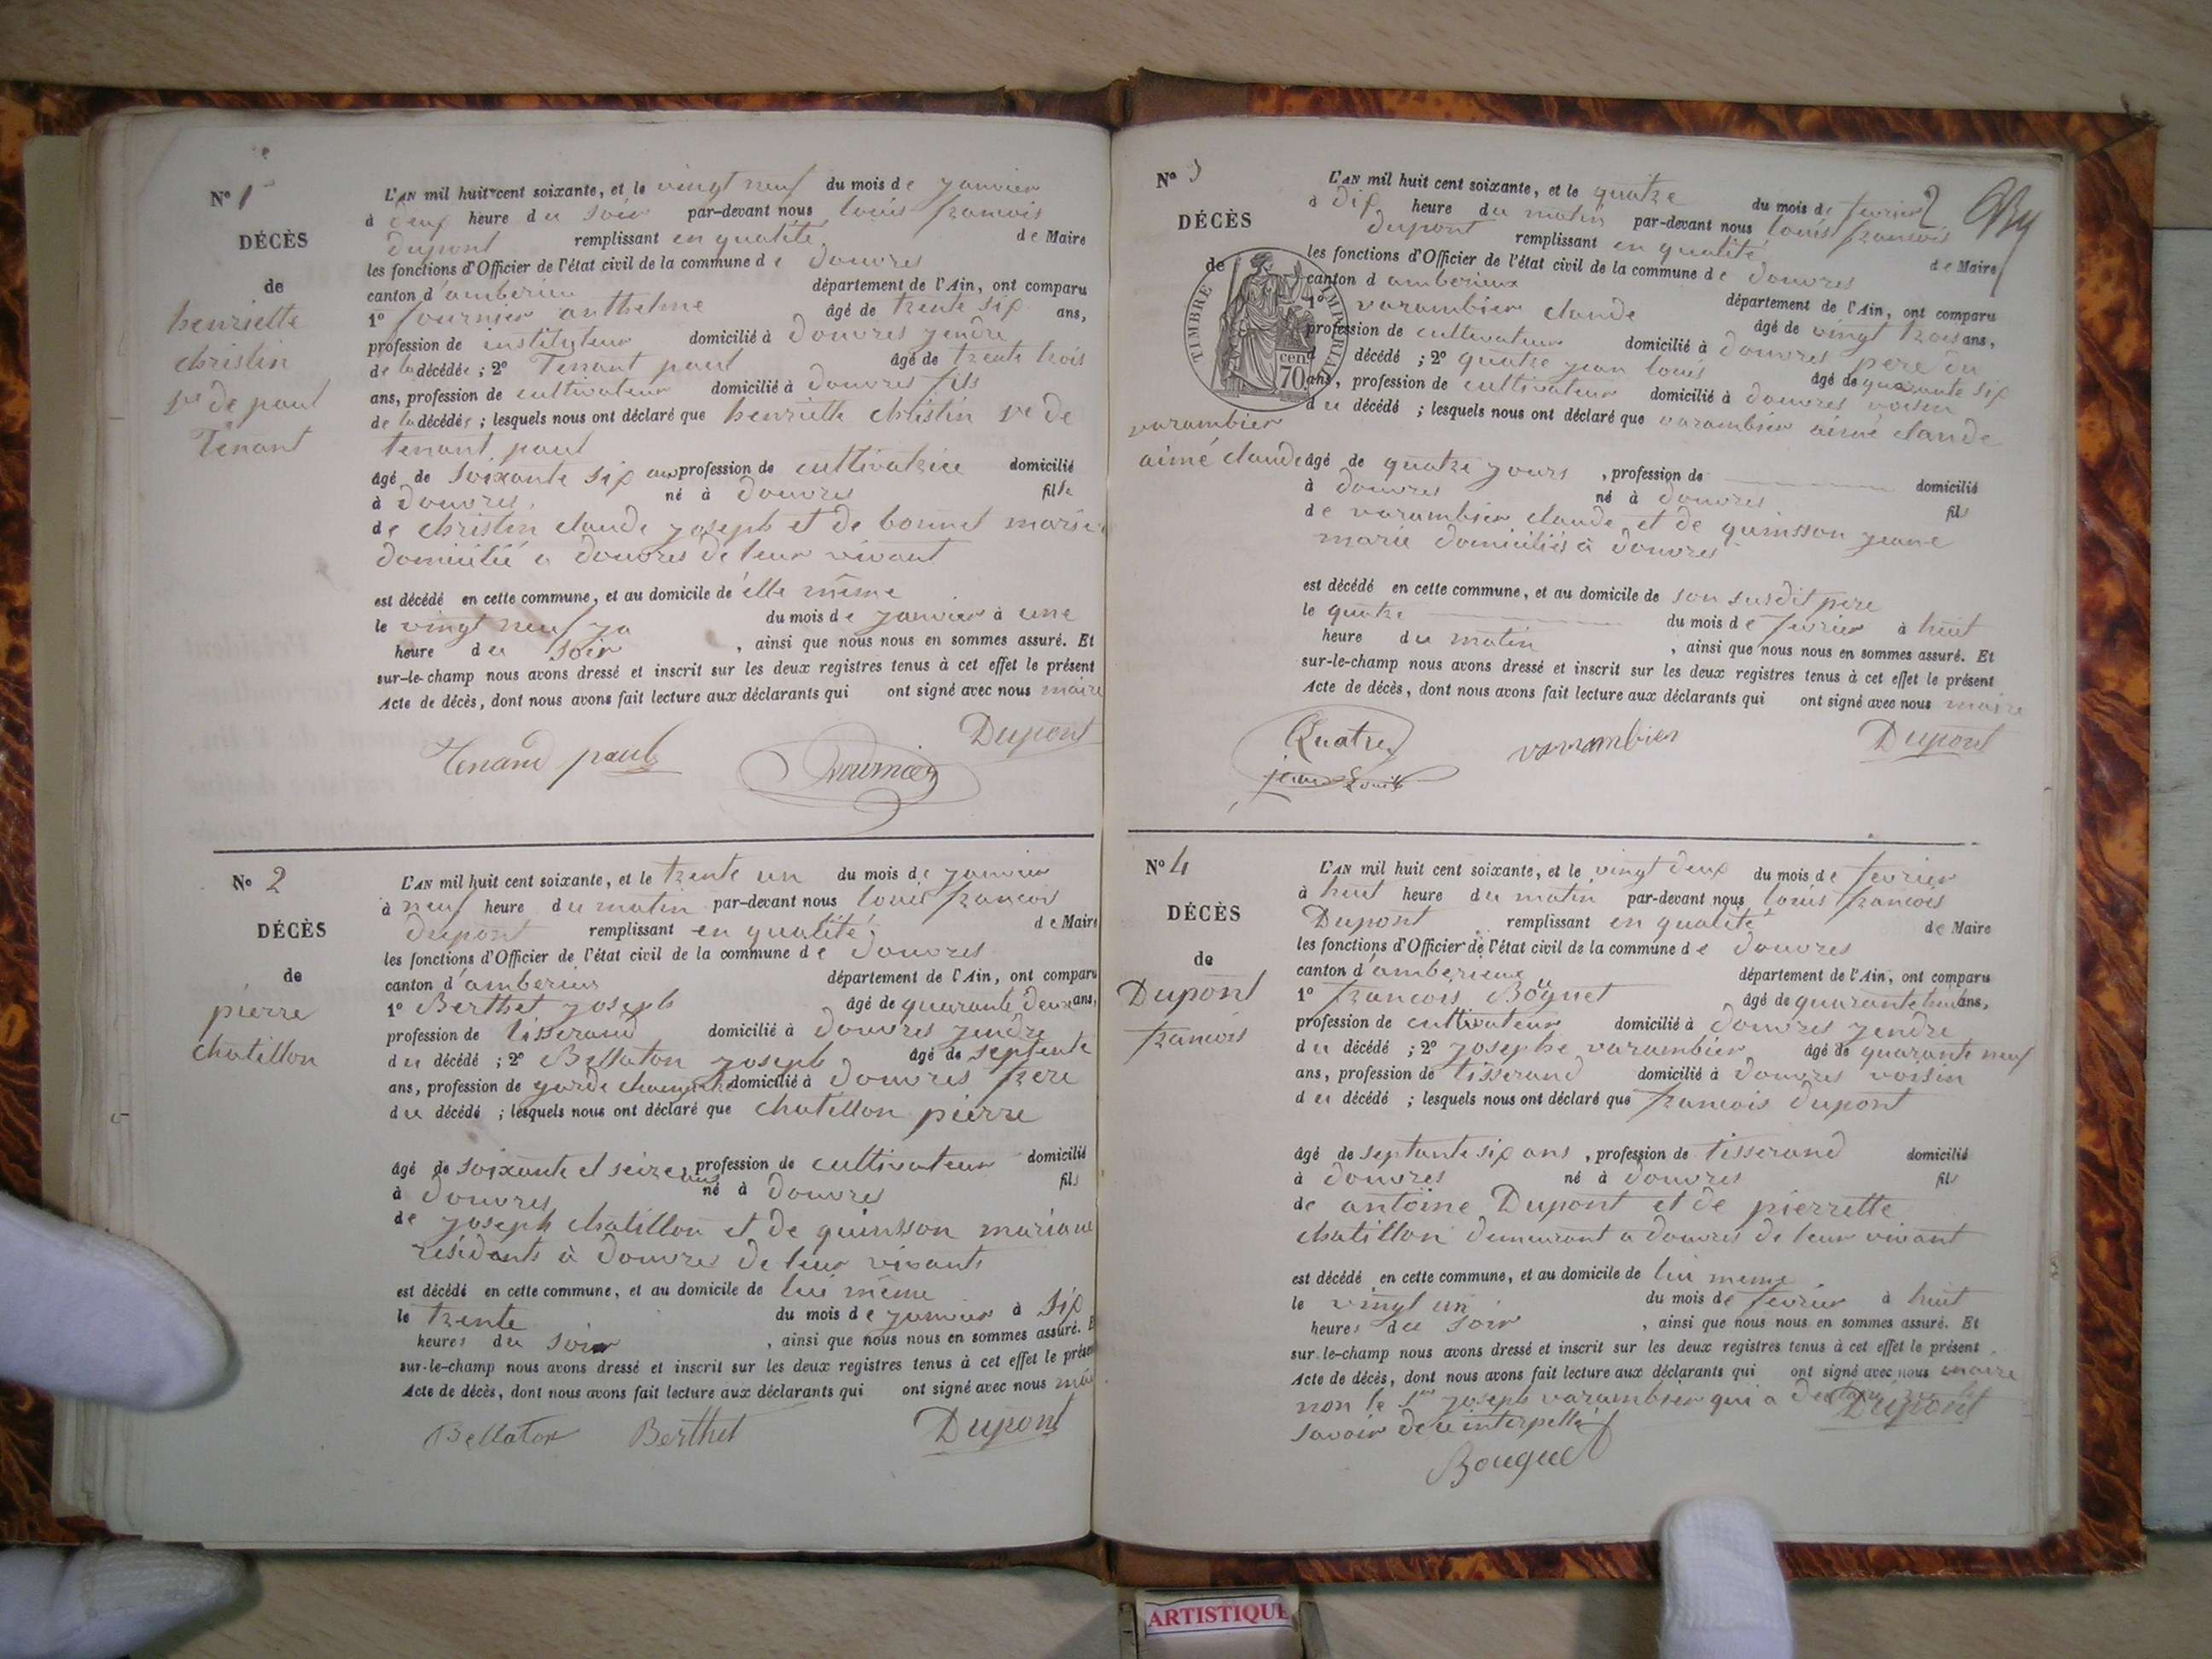 N° 1
DÉCÈS
de
henriette
christin
ve de paul
Tenant
L'AN mil huit cent soixante, et le vingt neuf du mois de janvier
à neuf heure du soir par-devant nous louis francois
dupont remplissant en qualité de Maire
les fonctions d'Officier de l'état civil de la commune de douvres
canton d'amberieu département de l'Ain, ont comparu
1° fournier anthelme âgé de trente six ans,
profession de instituteur domicilié à douvres jendre
de la décédée ; 2° Tenant paul âgé de trente trois
ans, profession de cultivateur domicilié à douvres fils
de la décédée ; lesquels nous ont déclaré que henriette christin ve de
tenant paul
âgé de soixante six ans profession de cultivatrice domicilié
à douvres, né à douvres fille
de christin claude joseph et de bonnet marie
domicilié a douvres de leur vivant
est décédé en cette commune, et au domicile de elle même
le vingt neuf du mois de janvier à une
heure du soir , ainsi que nous nous en sommes assuré. Et
sur-le-champ nous avons dressé et inscrit sur les deux registres tenus à cet effet le présent
Acte de décès, dont nous avons fait lecture aux déclarants qui ont signé avec nous maire
Dupont
Tenand paul fournier
N° 2
DÉCÈS
de
pierre
chatillon
L'AN mil huit cent soixante, et le trente un du mois de janvier
à neuf heure du matin par-devant nous louis francois
dupont remplissant en qualité de Maire
les fonctions d'Officier de l'état civil de la commune de douvres
canton d'amberieux département de l'Ain, ont comparu
1° Berthet joseph âgé de quarante deux ans,
profession de tisserand domicilié à douvres jendre
du décédé ; 2° Bellaton joseph âgé de septente
ans, profession de garde champetre domicilié à douvres frere
du décédé ; lesquels nous ont déclaré que chatillon pierre
âgé de soixante et seize ans profession de cultivateur domicilié
à douvres né à douvres fils
de joseph chatillon et de quinson mariane
résidants à douvres de leur vivants
est décédé en cette commune, et au domicile de lui même
le trente du mois de janvier à six
heures du soir , ainsi que nous nous en sommes assuré. E
sur-le-champ nous avons dressé et inscrit sur les deux registres tenus à cet effet le présen
Acte de décès, dont nous avons fait lecture aux déclarants qui ont signé avec nous mai
Bellaton Berthet Dupont
N° 3
2
DÉCÈS
de
TIMBRE IMPERIAL
70 cen.
varambier
aimé claude
L'AN mil huit cent soixante, et le quatre du mois de fevrier
à dix heure du matin par-devant nous louis francois
dupont remplissant en qualité de Maire
les fonctions d'Officier de l'état civil de la commune de douvres
canton d amberieux département de l'Ain, ont comparu
1° varambier claude âgé de vingt trois ans,
profession de cultivateur domicilié à douvres pere du
décédé ; 2° quatre jean louis âgé de quarante six
ans, profession de cultivateur domicilié à douvres voisin
du décédé ; lesquels nous ont déclaré que varambier aimé claude
âgé de quatre jours , profession de domicilié
à douvres né à douvres fils
de varambier claude et de quinsson jeane
marie domiciliés à douvres
est décédé en cette commune, et au domicile de son susdit pere
le quatre du mois de fevrier à huit
heure du matin , ainsi que nous nous en sommes assuré. Et
sur-le-champ nous avons dressé et inscrit sur les deux registres tenus à cet effet le présent
Acte de décès, dont nous avons fait lecture aux déclarants qui ont signé avec nous maire
Quatre varambier Dupont
jean Louis
N° 4
DÉCÈS
de
Dupont
francois
L'AN mil huit cent soixante, et le vingt deux du mois de fevrier
à huit heure du matin par-devant nous louis francois
Dupont remplissant en qualité de Maire
les fonctions d'Officier de l'état civil de la commune de douvres
canton d'amberieux département de l'Ain, ont comparu
1° francois Bouguet âgé de quarante huit ans,
profession de cultivateur domicilié à douvres jendre
du décédé ; 2° josephe varambier âgé de quarante neuf
ans, profession de tisserand domicilié à douvres voisin
du décédé ; lesquels nous ont déclaré que francois dupont
âgé de septante six ans , profession de tisserand domicilié
à douvres né à douvres fils
de antoine Dupont et de pierrette
chatillon demeurant a douvres de leur vivant
est décédé en cette commune, et au domicile de lui meme
le vingt un du mois de fevrier à huit
heures du soir , ainsi que nous nous en sommes assuré. Et
sur-le-champ nous avons dressé et inscrit sur les deux registres tenus à cet effet le présent
Acte de décès, dont nous avons fait lecture aux déclarants qui ont signé avec nous maire
non le joseph varambier qui a Dupont
savoir de ce interpellé
Bouguet
ARTISTIQUE